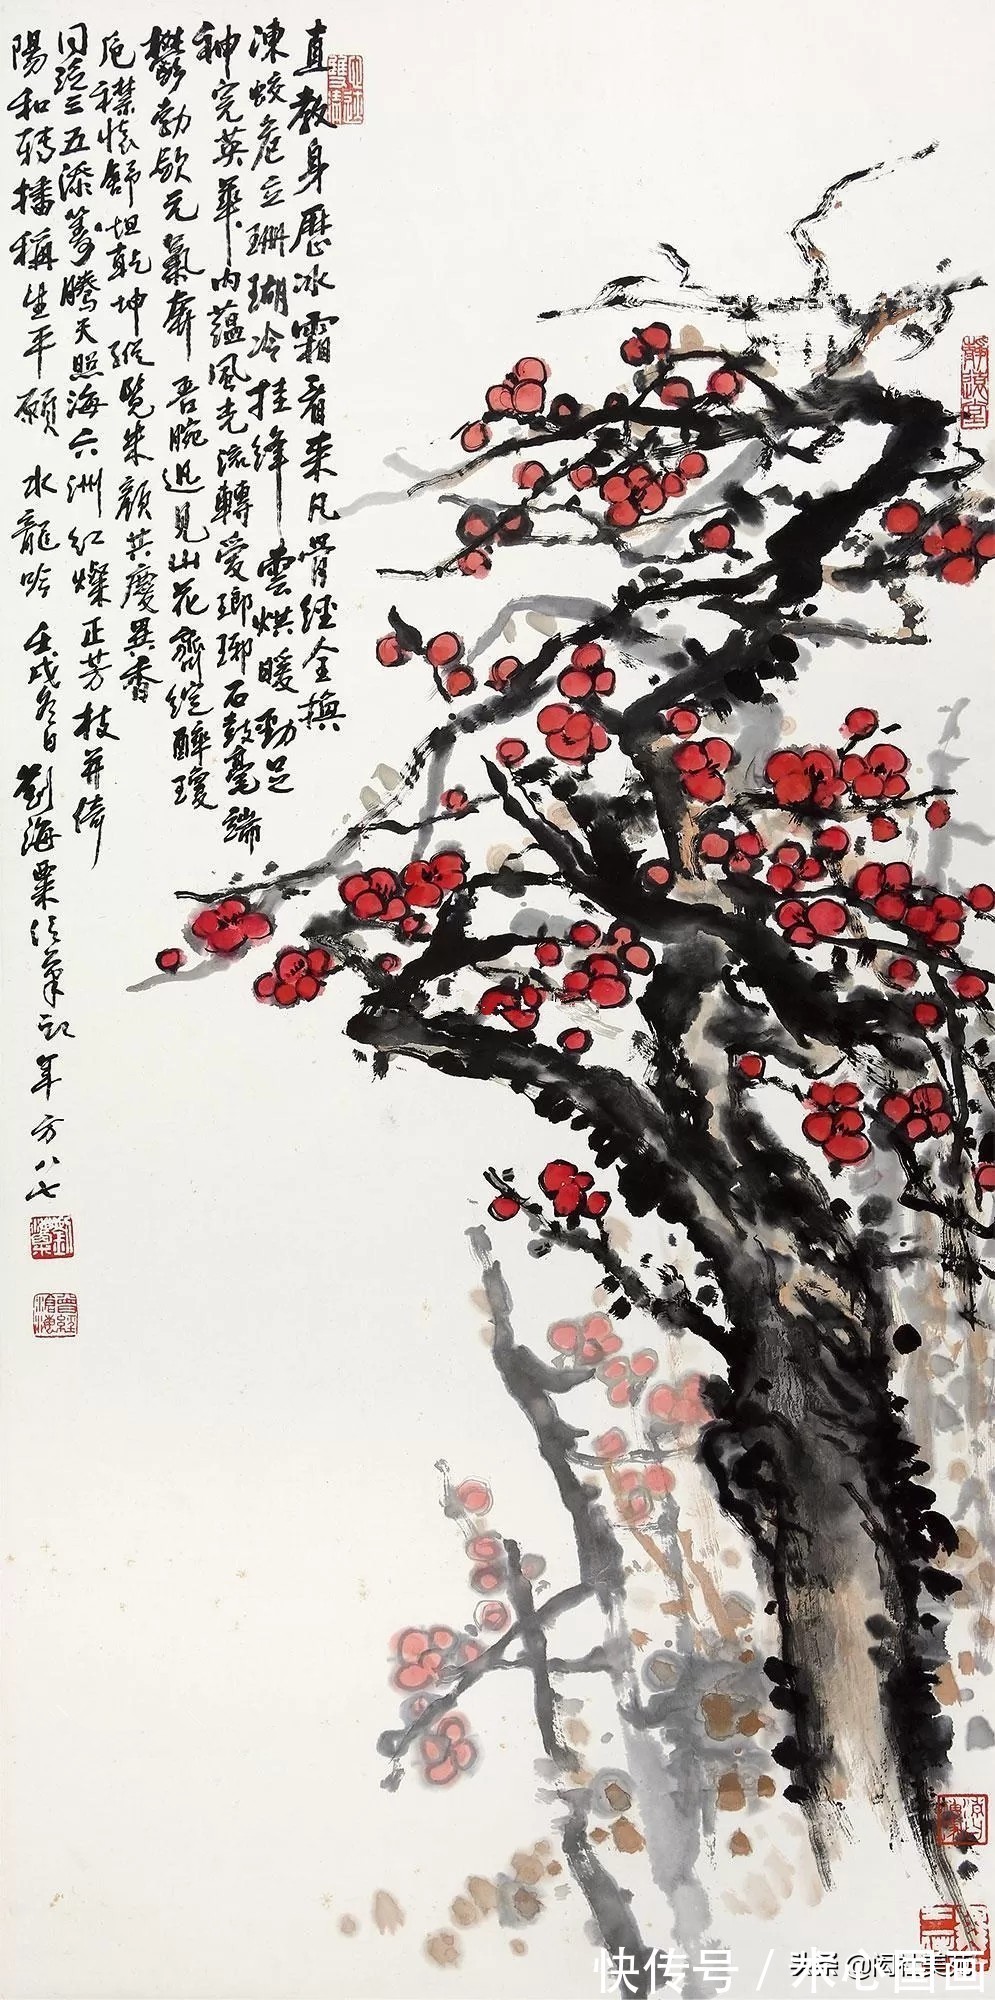 直教身歷冰霜看来凡骨經全換
凍蛟危立珊瑚冷挂绛雲烘暖勁足
神完英華内蕴風光流轉愛琅琊石鼓毫端
鬱勃歘元氣奔吾腕迅見山花齊綻醉瓊
卮襟懷舒坦乾坤縱覽朱顔共慶異香
同 三五添籌騰天照海六洲紅燦正芳枝并倚
陽和轉播稱生平願 水龍吟 壬戌冬日劉海粟 筆 年方八七
劉海粟
曾經滄海
靜遠堂
快传号 /